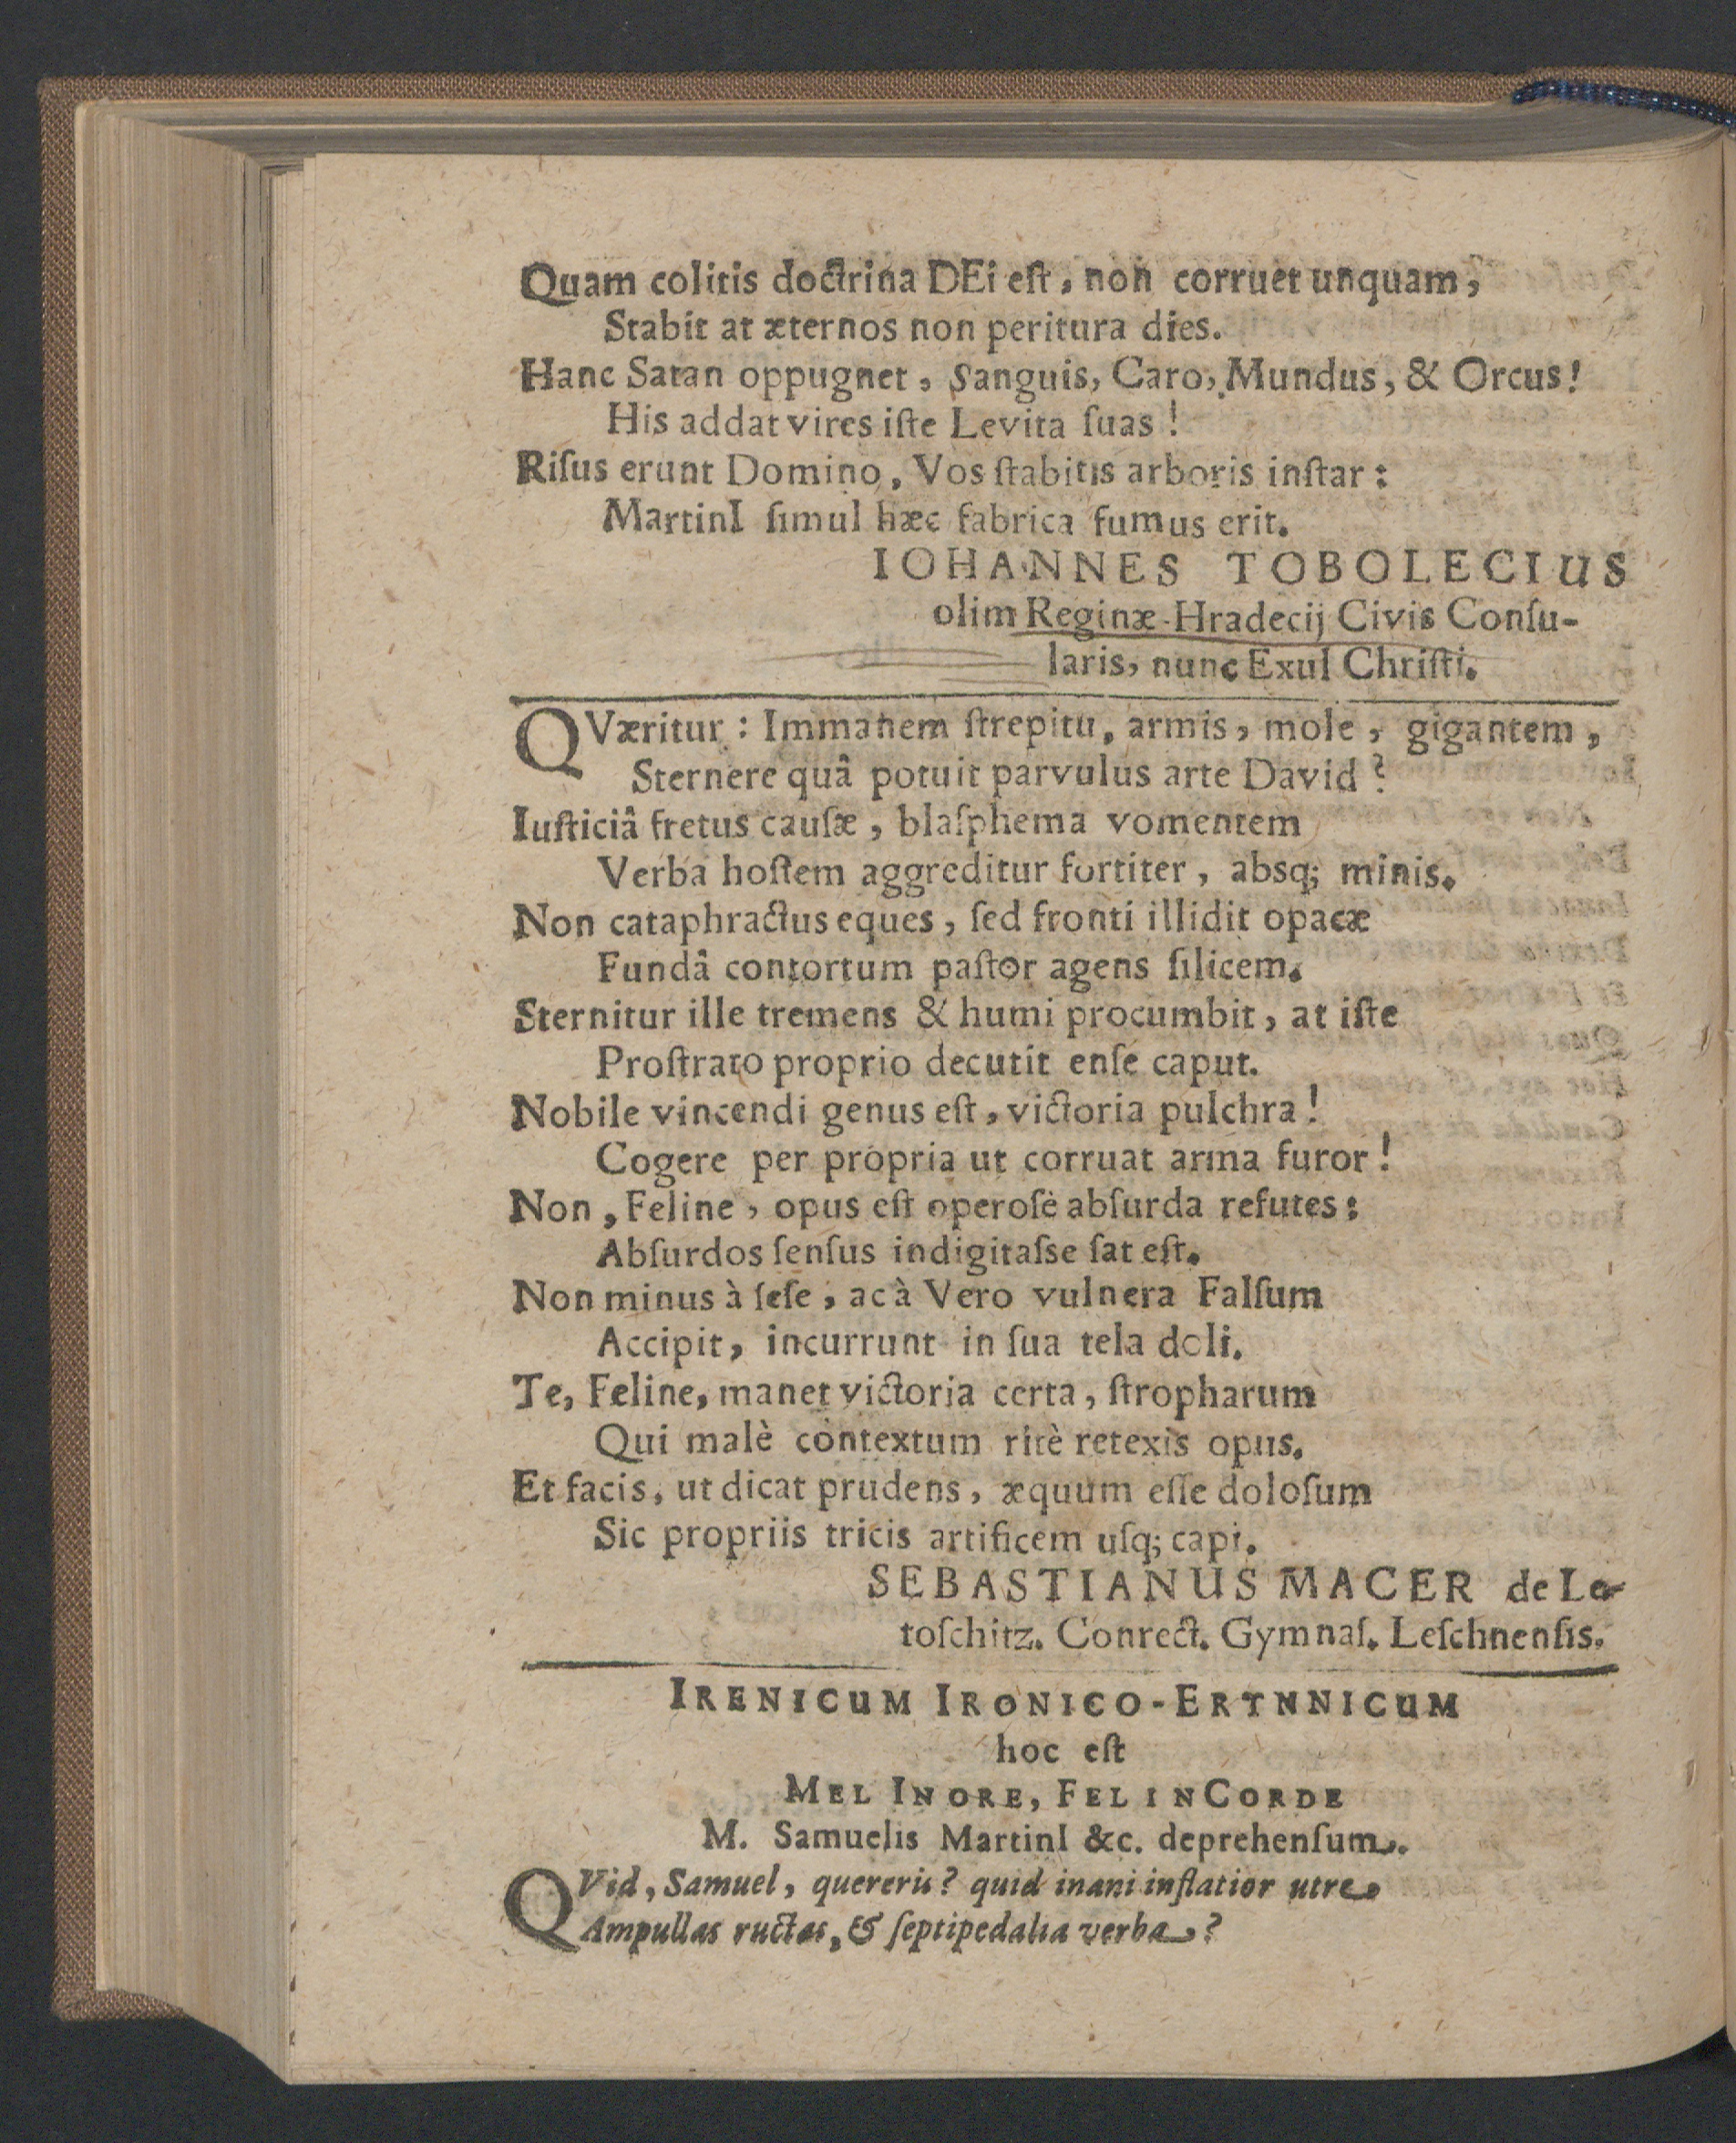 Quam colitis doctrina DEi eſt, non corruet unquam,
Stabit at æternos non peritura dies.
Hanc Satan oppugnet, Sanguis, Caro, Mundus, & Orcus!
His addat vires iſte Levita ſuas!
Riſus erunt Domino, Vos ſtabitis arboris inſtar:
MartinI ſimul hæc fabrica fumus erit.
IOHANNES TOBOLECIUS
olim Reginæ-Hradecij Civis Conſu-
laris, nunc Exul Chriſti.
QVæritur: Immanem ſtrepitu, armis, mole, gigantem,
Sternere quâ potuit parvulus arte David?
Iuſticiâ fretus cauſæ, blaſphema vomentem
Verba hoſtem aggreditur fortiter, absq; minis.
Non cataphractus eques, ſed fronti illidit opacæ
Fundâ contortum paſtor agens ſilicem.
Sternitur ille tremens & humi procumbit, at iſte
Proſtrato proprio decutit enſe caput.
Nobile vincendi genus eſt, victoria pulchra!
Cogere per propria ut corruat arma furor!
Non, Feline, opus eſt operoſè abſurda refutes:
Abſurdos ſenſus indigitaſse ſat eſt.
Non minus à ſeſe, ac à Vero vulnera Falſum
Accipit, incurrunt in ſua tela doli.
Te, Feline, manet victoria certa, ſtropharum
Qui malè contextum ritè retexis opus.
Et facis, ut dicat prudens, æquum eſſe doloſum
Sic propriis tricis artificem uſq; capi.
SEBASTIANUS MACER de Le-
toſchitz. Conrect. Gymnaſ. Leſchnenſis.
IRENICUM IRONICO-ERTNNICUM
hoc eſt
MEL IN ORE, FEL IN CORDE
M. Samuelis MartinI &c. deprehenſum.
QVid, Samuel, quereris? quid inani inflatior utre
Ampullas ructas, & ſeptipedalia verba?